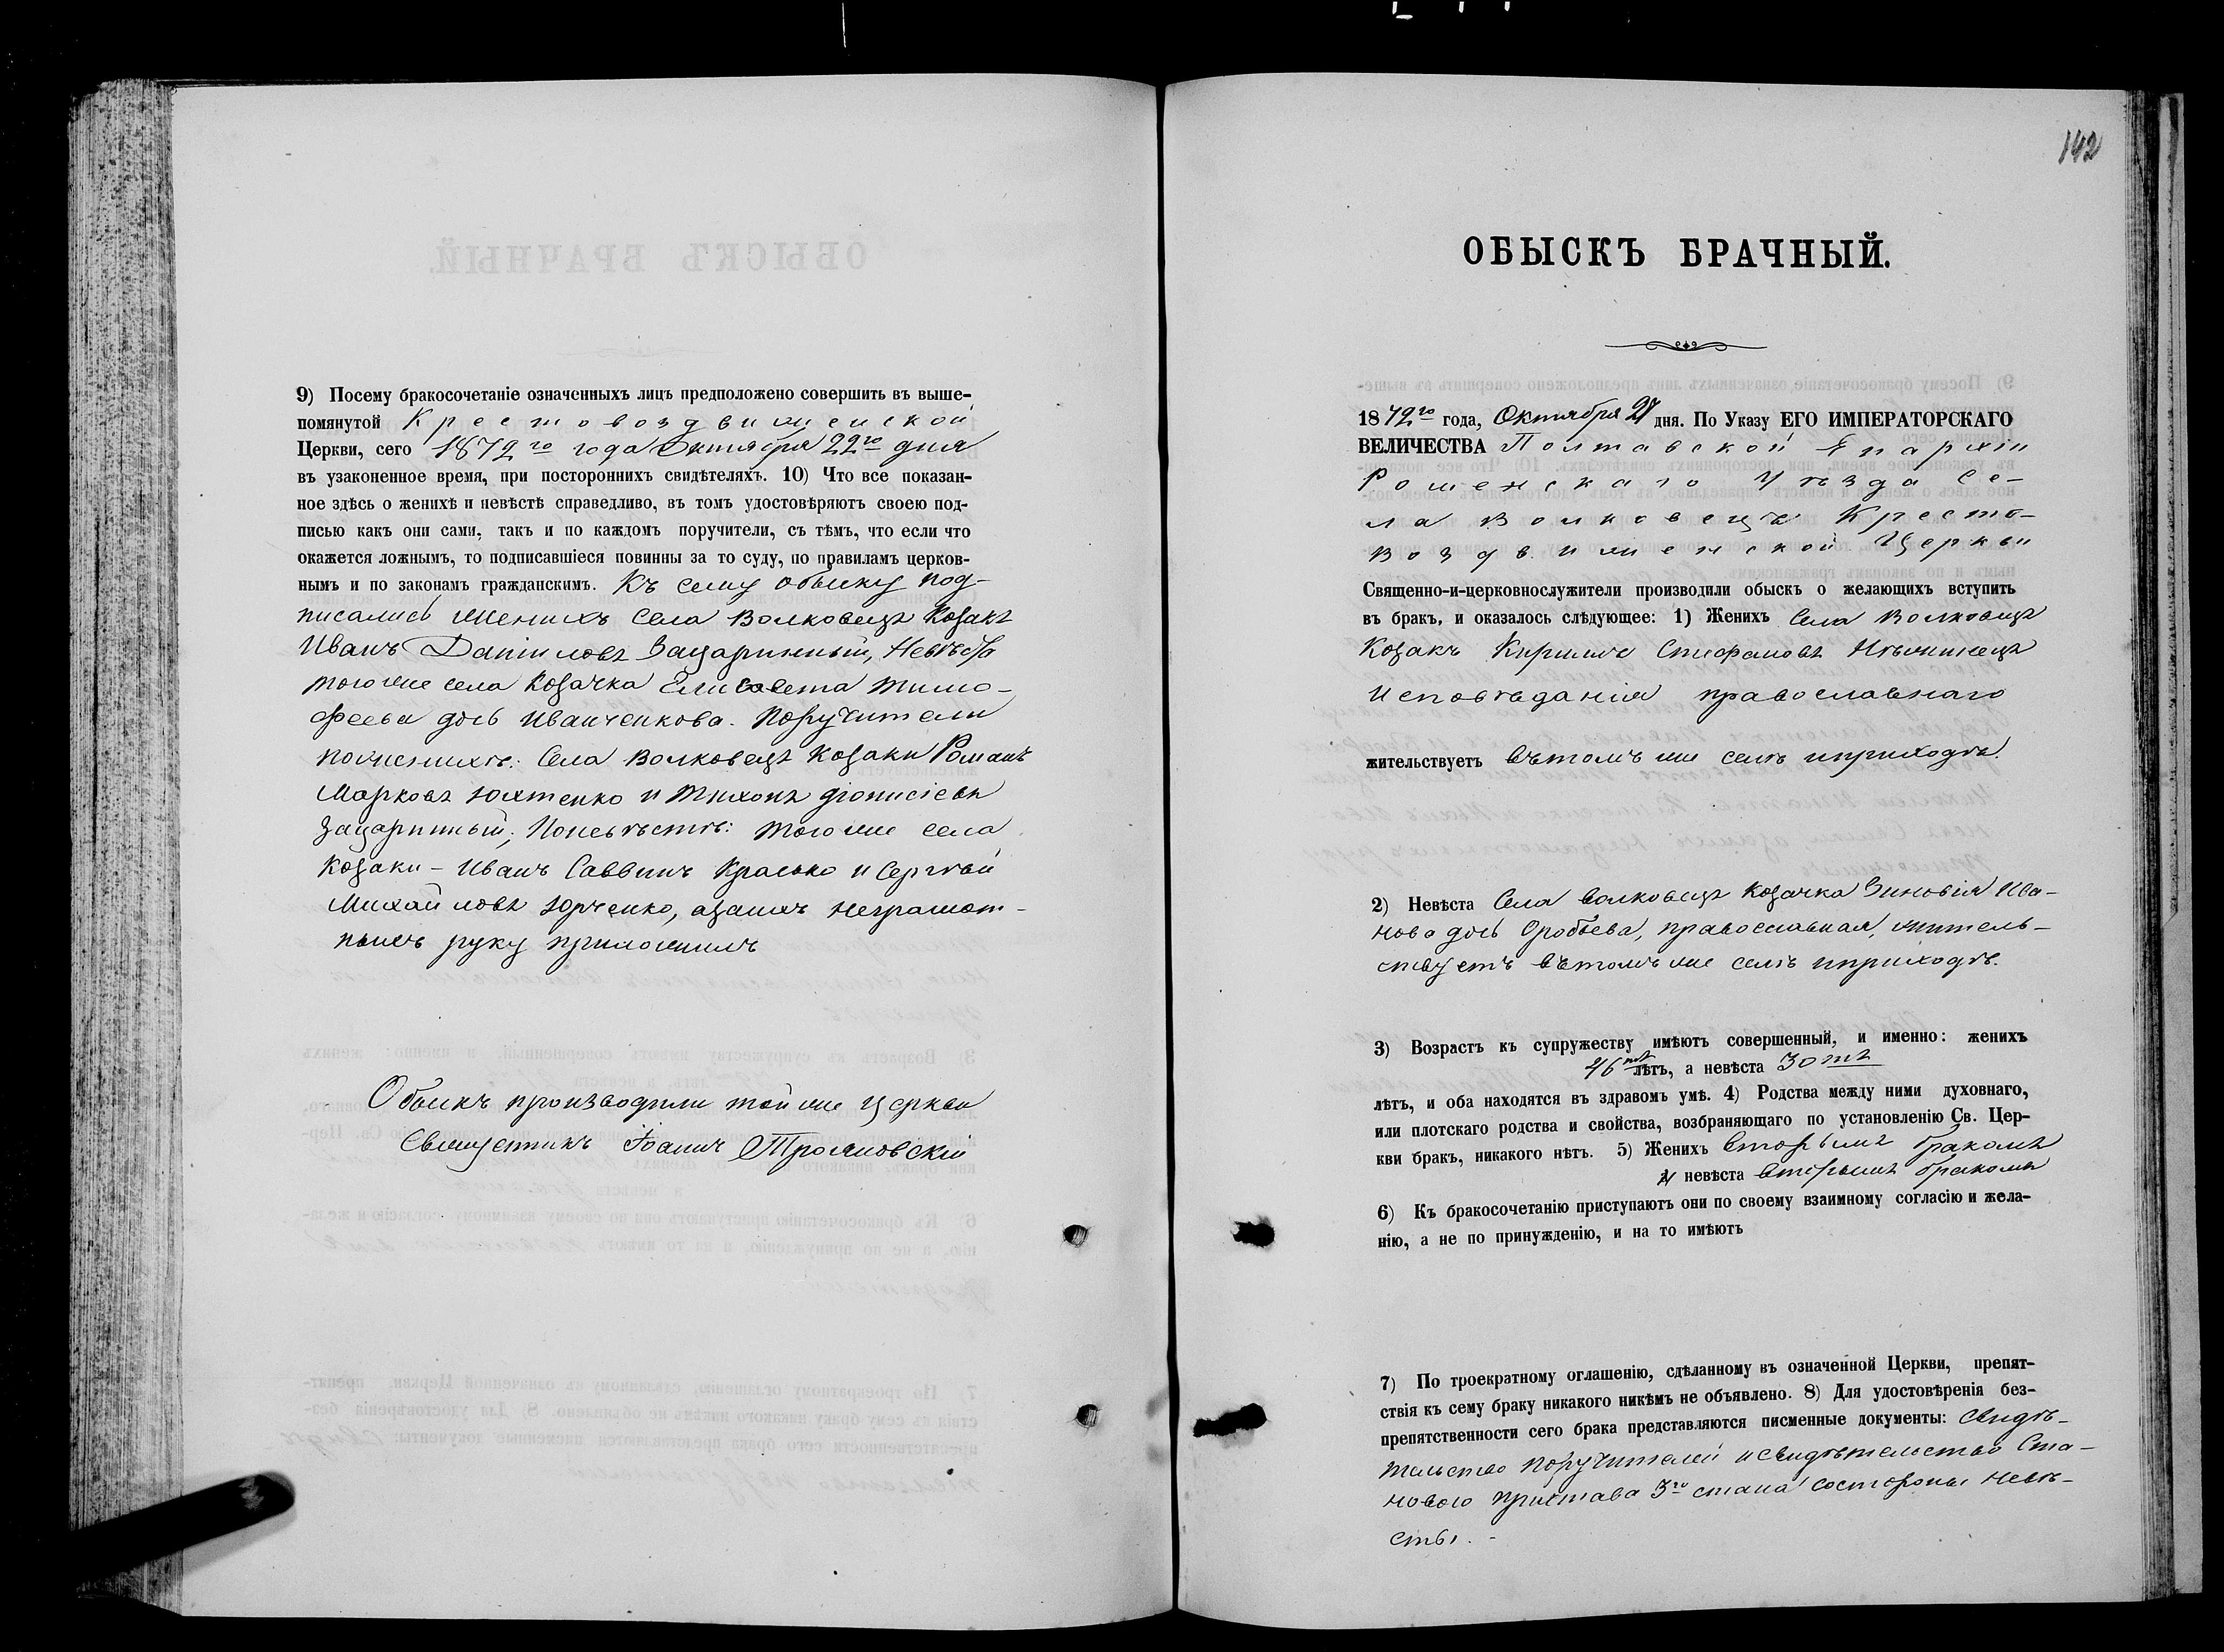 9) Посему бракосочетаніе означенныхъ лицъ предположено совершить въ выше-
помянутой Крестовоздвиженской
Церкви, сего 1872го года Октября 22го дня
въ узаконенное время, при постороннихъ свидѣтеляхъ. 10) Что все показан-
ное здѣсь о женихѣ и невѣстѣ справедливо, въ томъ удостовѣряютъ своею под-
писью какъ они сами, такъ и по каждомъ поручители, съ тѣмъ, что если что
окажется ложнымъ, то подписавшіеся повинны за то суду, по правиламъ церков-
нымъ и по законамъ гражданскимъ. Къ сему обыску под-
писались женихъ села Волковецъ Козакъ
Иванъ Даніиловъ Зацаринный, Невѣста
тогоже села Козачка Елисавета Тимо-
феева дочь Иванченкова. Поручители
пожениxѣ: Села Волковецъ Козаки Романъ
Марковъ Юхтенко и Тихонъ Діонисіевъ
Зацаринный; Поневѣстѣ: тогоже села
Козаки - Иванъ Саввинъ Красько и Сергѣй
Михайловъ Юрченко, азанихъ неграмот-
ныхъ руку приложилъ
Обыскъ производили тойже церкви
Священникъ Іоаннъ Трояновскій
142
ОБЫСКЪ БРАЧНЫЙ.
1872го года, Октября 27 дня. По Указу ЕГО ИМПЕРАТОРСКАГО
ВЕЛИЧЕСТВА Полтавской Епархіи
Роменскаго Уѣзда Се-
ла Волковецъ Кресто-
воздвиженской Церкви
Священно-и-церковнослужители производили обыскъ о желающихъ вступить
въ бракъ, и оказалось слѣдующее: 1) Женихъ Села Волковецъ
Козакъ Кирилъ Стефановъ
Исповѣданія православнаго
жительствуетъ вътомъже селѣ иприходѣ.
2) Невѣста Села Волковецъ Козачка Зиновія Ива-
нова дочь Оробьева, православная, житель-
ствуетъ вътомъже селѣ иприходѣ.
3) Возрастъ къ супружеству имѣютъ совершенный, и именно: женихъ
46ть лѣтъ, а невѣста 30ть
лѣтъ, и оба находятся въ здравомъ умѣ. 4) Родства между ними духовнаго,
или плотскаго родства и свойства, возбраняющаго по установленію Св. Цер-
кви бракъ, никакого нѣтъ. 5) Женихъ вторымъ бракомъ
и невѣста вторымъ бракомъ
6) Къ бракосочетанію приступаютъ они по своему взаимному согласію и жела-
нію, а не по принужденію, и на то имѣютъ
7) По троекратному оглашенію, сдѣланному въ означенной Церкви, препят-
ствія къ сему браку никакого никѣмъ не объявлено. 8) Для удостовѣренія без-
препятственности сего брака представляются писменные документы: Свидѣ-
тельство поручителей и свидѣтельство Ста-
новаго пристава 3го стана состороны невѣ-
сты. -